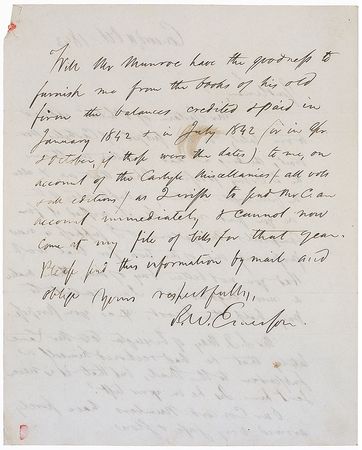 Will Mr Munroe have the goodness to
furnish me from the books of his old
firm the balances credited & paid in
January 1842 & in July 1842 (or in Apr
& October, if those were the dates) to me, on
account of the Carlyle Miscellanies (all vols
& all editions) as I wish to send Mr C. an
account immediately & cannot now
come at my file of bills for that year.
Please send this information by mail and
oblige Yours respectfully,
R. W. Emerson.